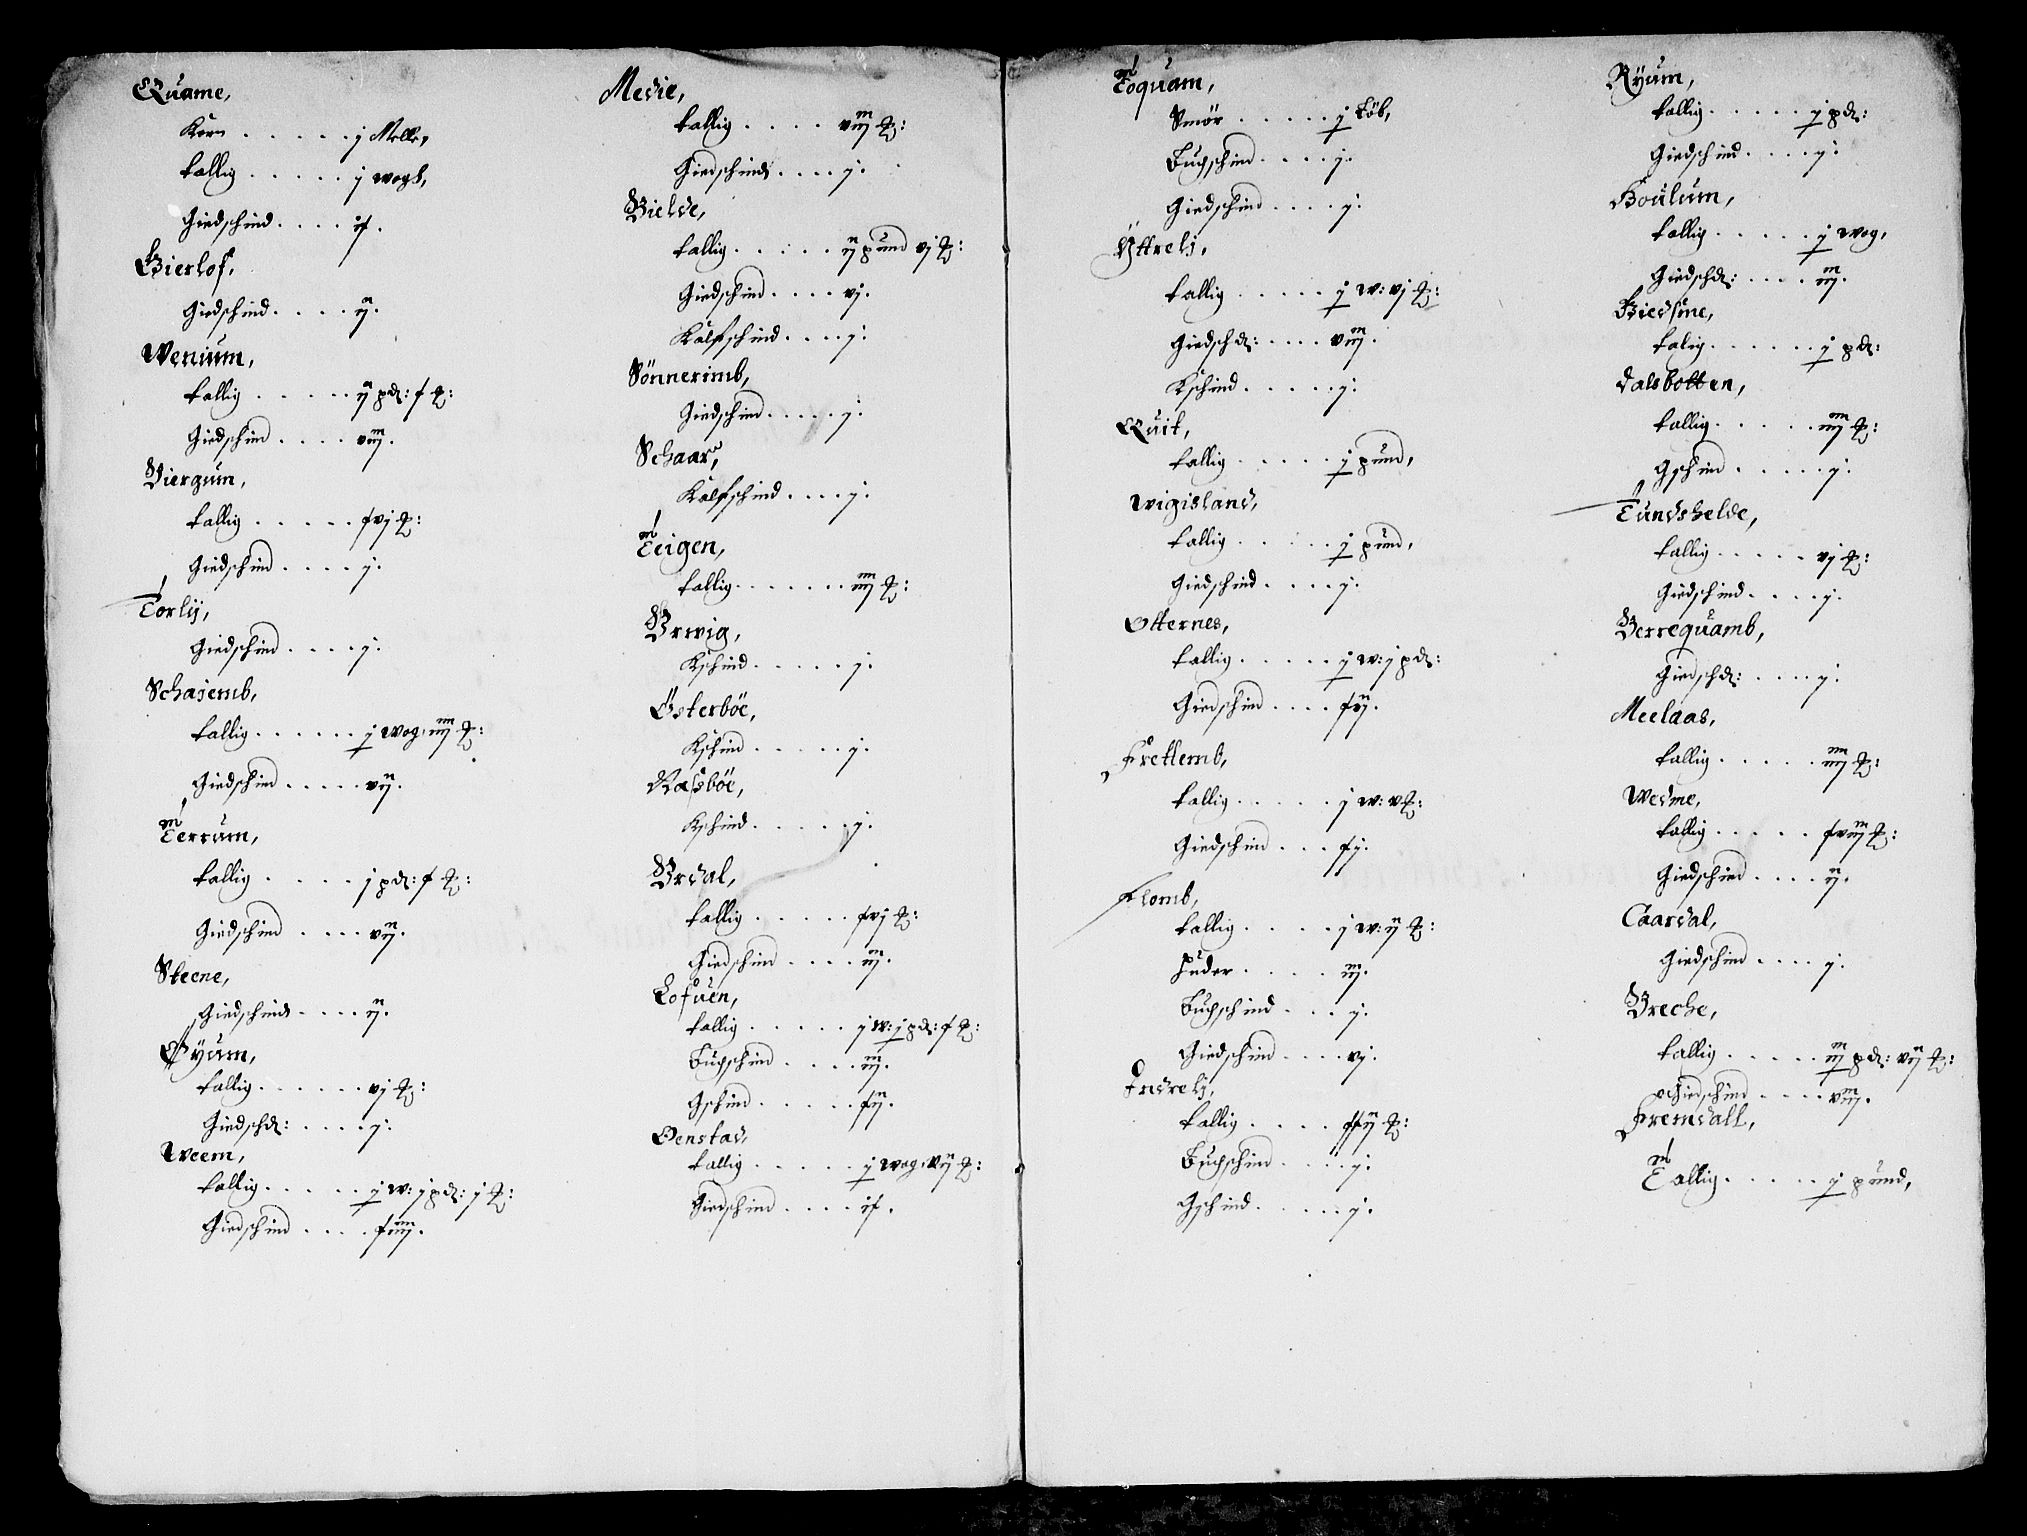 Quame,
Korn . . . . . j Melle,
tallig . . . . . j wogh,
Giedschind . . . . if.
Bierlof,
Giedschind . . . . ij.
Wenium,
tallig . . . . . ij pd: f
Giedschin . . . . viij.
Biergum,
tallig . . . . . fvj
Giedschind . . . . j.
Torlij,
Giedschind . . . . j.
Schasemb,
tallig . . . . . . j wog, iiij
Giedschin . . . . . vij.
Terrum,
tallig . . . . j pd: f
Giedschind . . . . vij.
Steene,
Giedschind . . . . ij.
Øyum,
tallig . . . . . . vj
Giedschd: . . . . j.
Weem,
tallig . . . . . j w: j pd: j
Giedschind . . . . fiiij.
Medie,
tallig . . . . viij
Giedschind . . . . j.
Bielde,
tallig . . . . . ij pund vj
Giedschind . . . . vj.
Kalfschind . . . . j.
Sönnerimb,
Giedschind . . . . . j.
Schaar,
Kalfschind . . . . j.
Teigen,
tallig . . . . . . iiij
Brwig,
Kschind . . . . . j.
Österböe,
Kschind . . . . . j.
Nasböe,
Kschind . . . . . j.
Brdal,
tallig . . . . . fvj
Giedschind . . . . iij.
Lofuen,
tallig . . . . . j w: j pd: f
Buchschin . . . . . iij.
Gschind . . . . . fij.
Oenstad,
tallig . . . . . j wog, vij
Giedschind . . . . if.
Toquam,
Smör . . . . . j Löb,
Buchschind . . . . j.
Giedschind . . . . j.
Yttrelj,
tallig . . . . . j w: vj
Giedschd: . . . . viij.
Kschind . . . . . j.
Quit,
tallig . . . . . j pund,
Wigisland,
tallig . . . . . j pund,
Giedschind . . . . j.
Otternes,
tallig . . . . . j w: j pd:
Giedschind . . . . fij.
Frettemb,
tallig . . . . . j w: v
Giedschin . . . fj.
Flomb,
tallig . . . . j w: ij
Huder . . . . iij.
Buchschind . . . j.
Giedschin . . . . vj.
Indrelj,
tallig . . . . ffij
Buchschin . . . . j.
Gschind . . . . . j.
Ryum,
tallig . . . . . j pd:
Giedschind . . . . j.
Houlum,
tallig . . . . . j wog,
Giedschd: . . . . iij.
Biedsme,
talig . . . . . . j pd:
dalsbotten,
tallig . . . . . iiij
Gschind . . . . . j.
Tundshelde,
tallig . . . . . vj
Giedschind . . . . j.
Berrequamb,
Giedschd: . . . . j.
Meelaas,
tallig . . . . . iiij
Wedme,
tallig . . . . . fviij
Giedschind . . . . ij.
Caardal,
Giedschind . . . . j.
Breche,
tallig . . . . . iij pd: vij
Giedschind . . . . viij.
Fremdall,
Tallig . . . . . j pund,